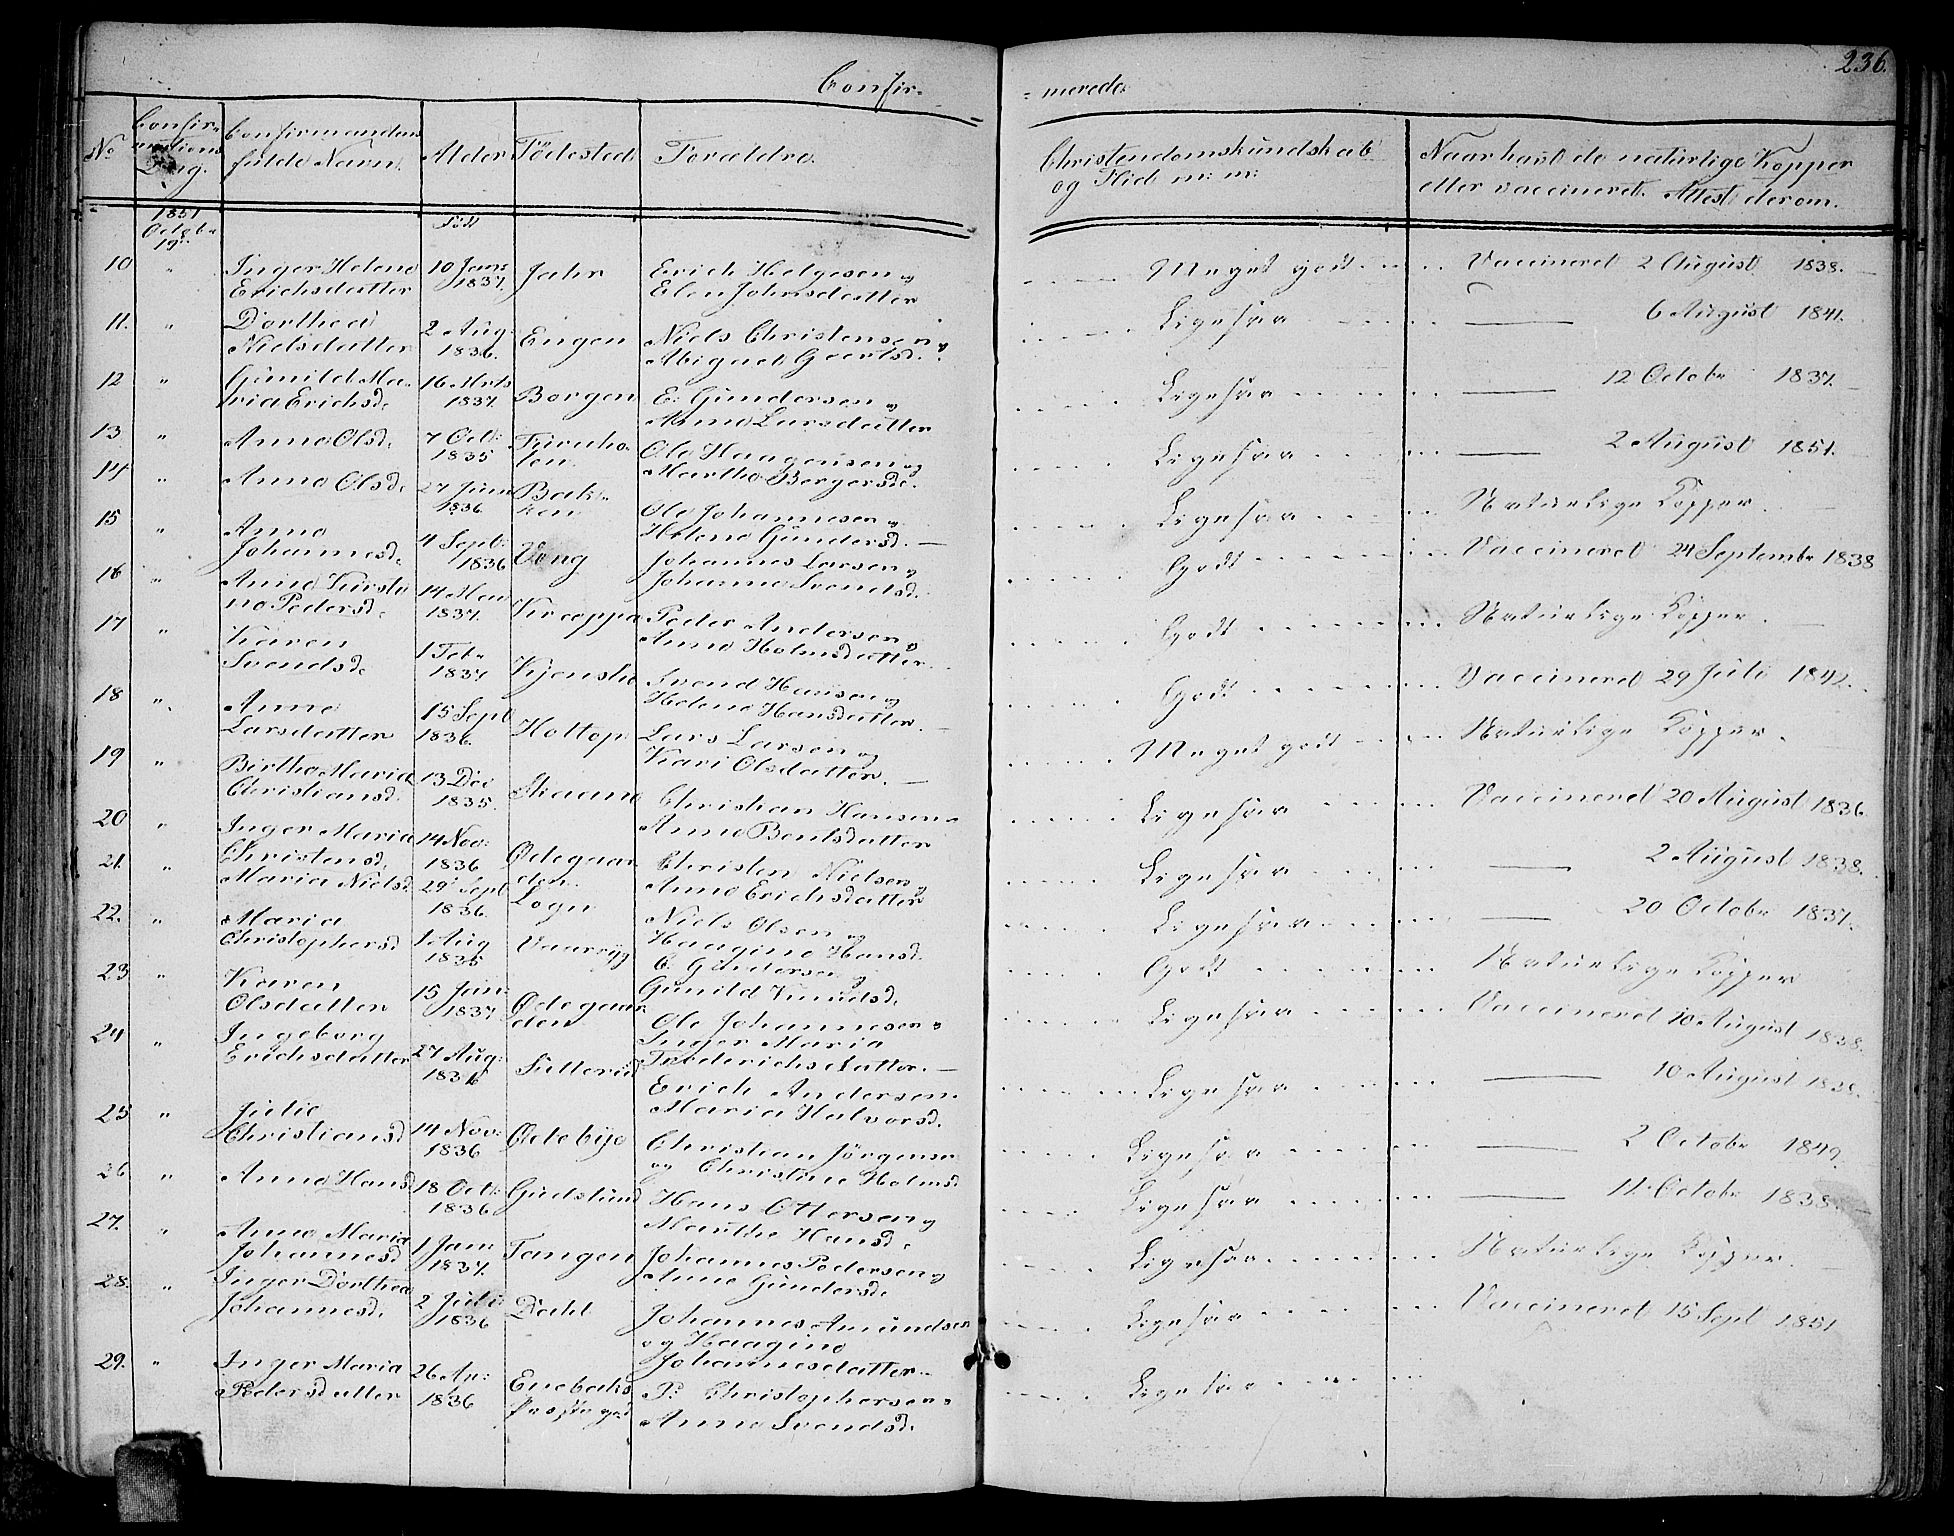 236.
Confir= =merede
No Confir= mations Dag. Confirmandens fulde Navn. Alder Födested Forældre. Christendomskundskab og Flid m: m: Naar havt de naturlige Kopper eller vaccineret. Attest derom.
1851 Octobr 19. Född
10 " Inger Helene Erichsdatter 10 Janr 1837. Jahr Erich Helgesen og Elen Johnsdatter Meget godt Vaccineret 2 August 1838.
11. " Dorthea Nielsdatter 2 Aug: 1836. Engen Niels Christensen og Abigael Geertsd. Ligesaa 6 August 1841.
12 " Gunild Maria Erichsd. 16 Mrts 1837. Borgen E. Gundersen og Anne Larsdatter Ligesaa 12 Octobr 1837.
13 " Anne Olsd. 7 Oct: 1835 Furuholen Ole Haagensen og Marthe Borgersd. Ligesaa 2 August 1851.
14 " Anne Olsd. 27 Juni 1836 Bakken Ole Johannesen og Helene Gundersd. Ligesaa Naturlige Kopper.
15 " Anne Johannesd. 4 Sept: 1836 Vong Johannes Larsen og Johanne Svendsd. Godt Vaccineret 24 Septembr 1838
16 " Anne Kirstine Pedersd. 14 Mai 1837. Kroppa Peder Andersen og Anne Holmsdatter Godt Naturlige Kopper.
17 " Karen Svendsd. 1 Febr 1837 Kjensli Svend Hansen og Helene Hansdatter Godt Vaccineret 29 Juli 1842.
18 " Anne Larsdatter 15 Sept 1836. Holtop Lars Larsen og Kari Olsdatter. Meget godt Naturlige Kopper.
19 " Birthe Maria Christiansd. 13 Dec 1835. Skaane Christian Hansen Anne Bentsdatter Ligesaa Vaccineret 20 August 1836
20 " Inger Maria Christensd. 14 Nov: 1836 Ödegaarden. Christen Nielsen og Anne Erichsdatter Ligesaa 2 August 1838.
21. " Maria Nielsd. 29 Sept 1836. Logn Niels Olsen og Haagine Hansd. Ligesaa 20 Octobr 1837.
22. " Maria Christophersd 1 Aug 1835 Vaarryg C. Gundersen og Gunild Knudsd. Godt Naturlige Kopper
23 " Karen Olsdatter 15 Jan: 1837 Ödegaarden Ole Johannesen Inger Maria Frederichsdatter. Ligesaa Vaccineret 10 August 1838.
24 " Ingeborg Erichsdatter 27 Aug: 1836 Sætterud Erich Andersen. Maria Halvorsd. Ligesaa 10 August 1838.
25 " Julie Christiansd 14 Nov: 1836 Ödebye Christian Jörgensen og Christine Holmsd. Ligesaa 2 Octobr 1849.
26 " Anne Hansd 18 Oct: 1836. Gudslund Hans Ottersen og Marthe Hansd. Ligesaa 11. Octobr 1838.
27. " Anne Maria Johannesd 1 Jan 1837. Tangen Johannes Pedersen og Anne Gundersd. Ligesaa Naturlige Kopper.
28. " Inger Dorthea Johannesd. 2 Juli 1836 Dahl Johannes Amundsen og Haagine Johannesdatter Ligesaa Vaccineret 15 Sept 1851
29. " Inger Maria Pedersdatter 26 Ap: 1836 Enebaks Præstegrd P: Christophersen Anne Svendsd. Ligesaa